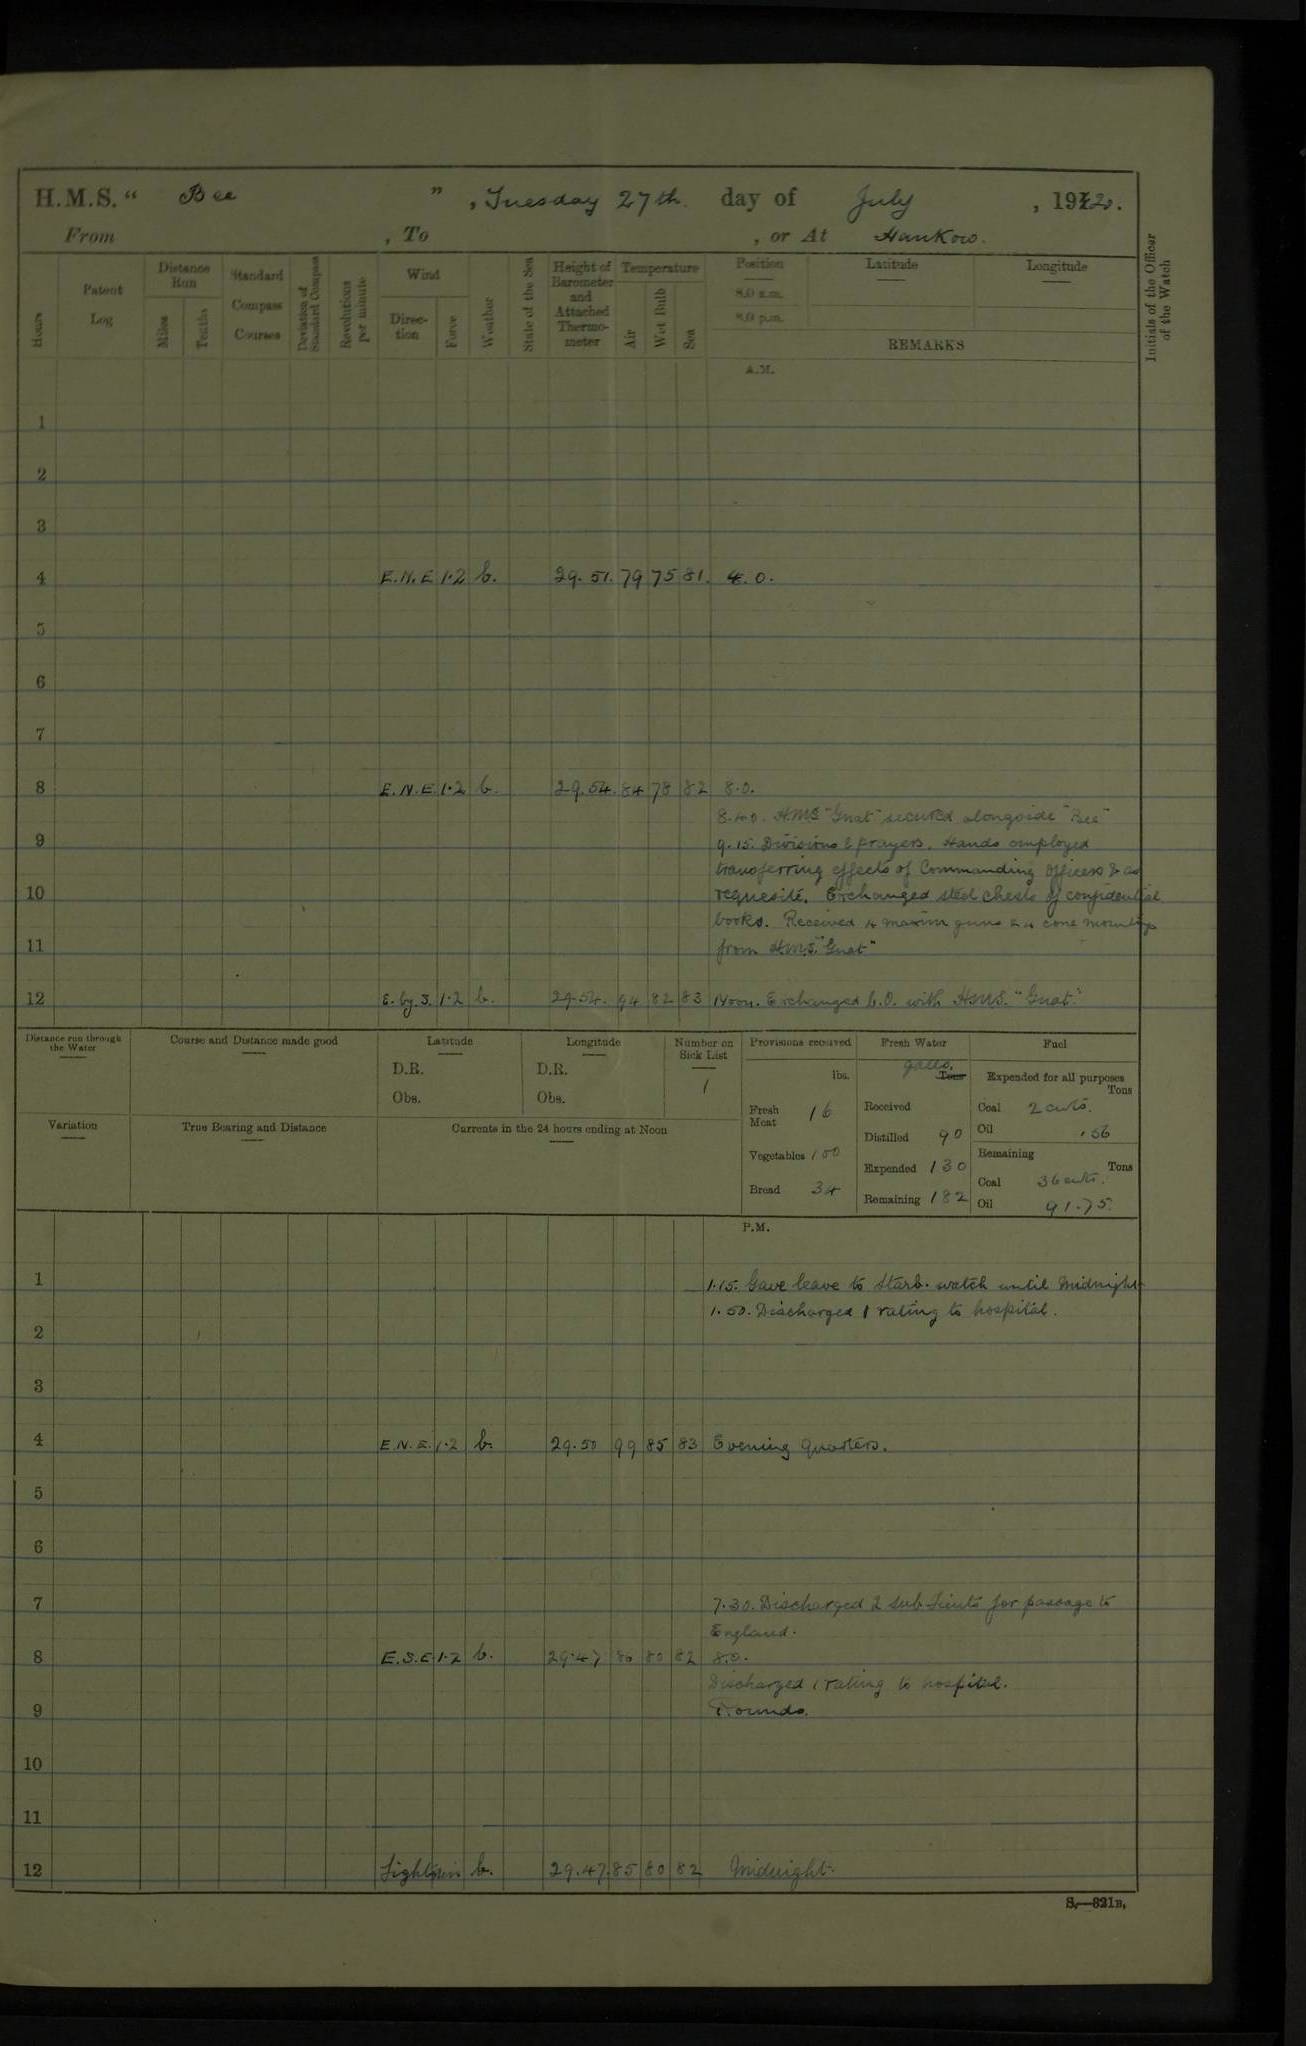 H.M.S. “ Bee ”, Tuesday 27th. day of July, 1920.
From , To , or At Hankow.
Hours
Patent Log
Distance Run
Miles
Tenths
Standard Compass Courses
Deviation of Standard Compass
Revolutions per minute
Wind
Direction
Force
Weather
State of the Sea
Height of Barometer and Attached Thermometer
Temperature
Air
Wet Bulb
Sea
Position
8.0 a.m.
8.0 p.m.
Latitude
Longitude
REMARKS
Initials of the Officer of the Watch
A.M.
1
2
3
4 E.N.E 1·2 b. 29.51. 79 75 81. 4.0.
5
6
7
8 E.N.E. 1·2 b. 29.54. 84 78 82 8.0.
8.40. H.M.S "Gnat" secured alongside "Bee"
9 9.15. Divisions & prayers. Hands employed
transferring effects of Commanding Officers & as
10 requesite. Exchanged steel chests of confidential
books. Received 4 maxim guns & 4 cone mountings
11 from H.M.S. "Gnat"
12 E. by S. 1·2 b. 29.54. 94 82 83 Noon. Exchanged C.O. with H.M.S. "Gnat."
Distance run through the Water
Course and Distance made good
Latitude
D.R.
Obs.
Longitude
D.R.
Obs.
Number on Sick List
1
Provisions received
lbs.
Fresh Meat 16
Vegetables 100
Bread 34
Fresh Water
galls.
Tons
Received
Distilled 90
Expended 130
Remaining 182
Fuel
Expended for all purposes
Tons
Coal 2 cwts.
Oil .56
Remaining
Tons
Coal 36 cwts.
Oil 91.75.
Variation
True Bearing and Distance
Currents in the 24 hours ending at Noon
P.M.
1 1.15. Gave leave to Starb. watch until Midnight
1.50. Discharged 1 rating to hospital.
2
3
4 E.N.E. 1·2 b. 29.50 99 85 83 Evening quarters.
5
6
7 7.30. Discharged 2 Sub Lieuts for passage to
England.
8 E.S.E 1·2 b. 29.47 86 80 82 8.0.
Discharged 1 rating to hospital.
9 Rounds.
10
11
12 Light airs b. 29.47. 85 80 82 Midnight.
S.—321B.